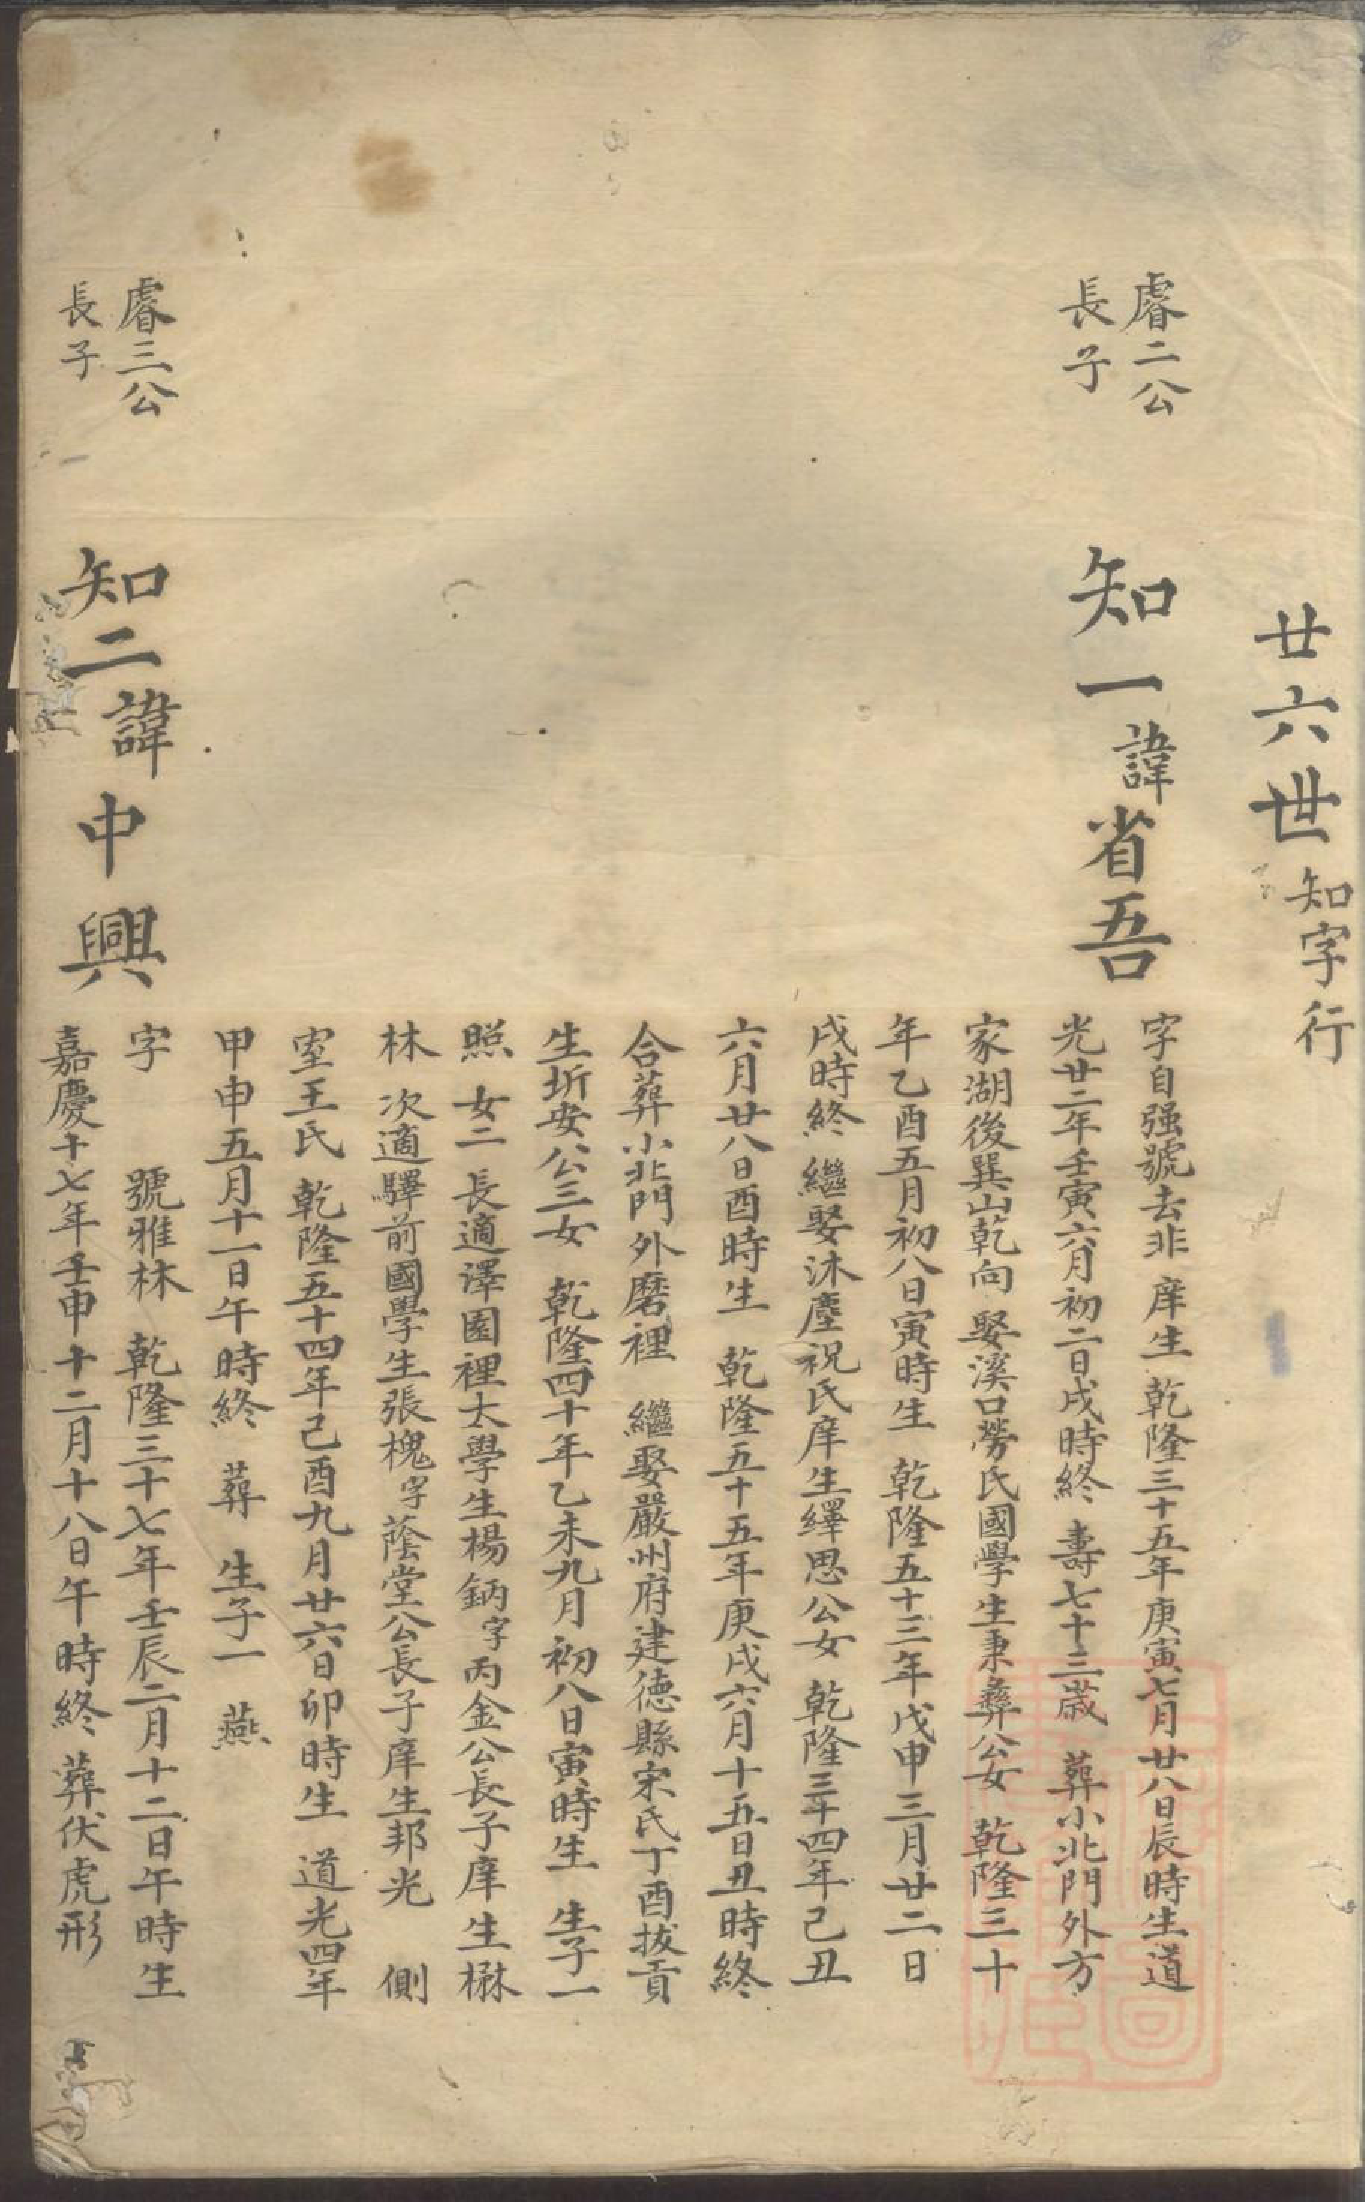 廿六世知字行
睿二公
長子
知一諱省吾
字自强號去非 庠生 乾隆三十五年庚寅七月廿八日辰時生道
光廿二年壬寅六月初二日戌時終 壽七十三歲 葬小北門外方
家湖後巽山乾向 娶溪口勞氏國學生秉彝公女 乾隆三十
年乙酉五月初八日寅時生 乾隆五十三年戊申三月廿二日
戌時終 繼娶沐塵祝氏庠生繹思公女 乾隆三十四年己丑
六月廿八日酉時生 乾隆五十五年庚戌六月十五日丑時終
合葬小北門外磨裡 繼娶嚴州府建德縣宋氏丁酉拔貢
生圻安公三女 乾隆四十年乙未九月初八日寅時生 生子一
照 女二 長適澤園裡太學生楊鈵字丙金公長子庠生楙
林 次適驛前國學生張槐字蔭堂公長子庠生邦光 側
室王氏 乾隆五十四年己酉九月廿六日卯時生 道光四年
甲申五月十一日午時終 葬 生子一 燕
睿三公
長子
知二諱中興
字 號雅林 乾隆三十七年壬辰二月十二日午時生
嘉慶十七年壬申十二月十八日午時終 葬伏虎形